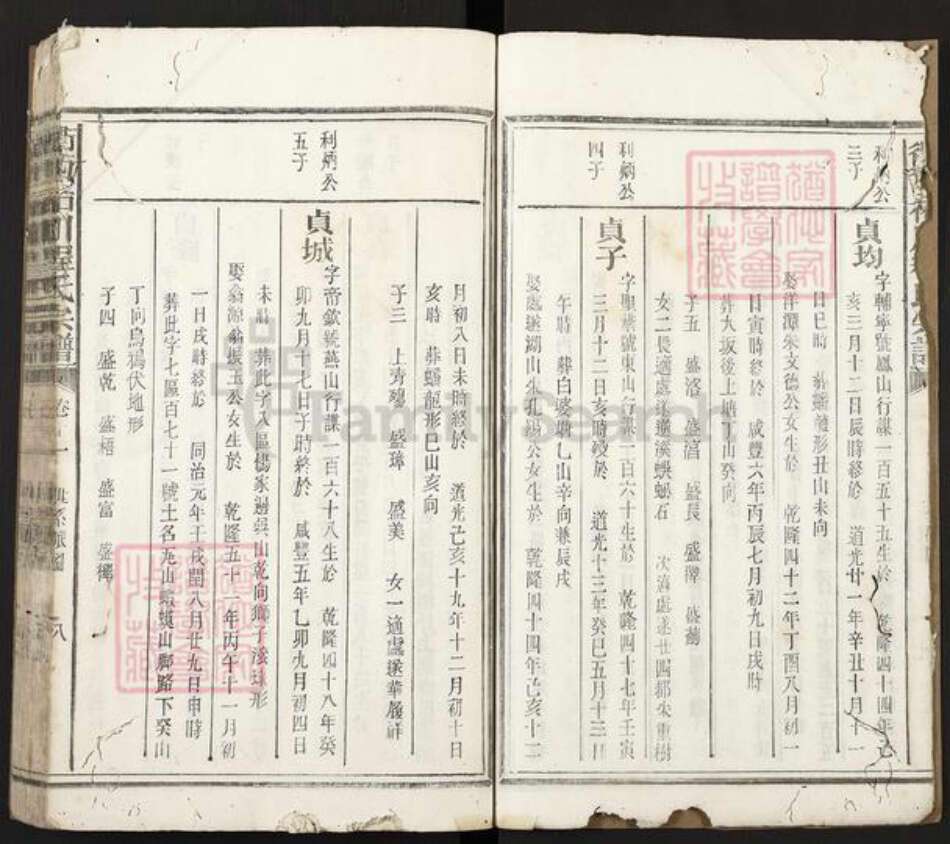 利炳公
三子
貞均
字輔寧號鳳山行謀一百五十五生於 乾隆四十四年己
亥三月十二日辰時終於 道光廿一年辛丑十月十一
日巳時 形丑山未向
娶洋潭朱文德公女生於 乾隆四十二年丁酉八月初一
日寅時終於 咸豐六年丙辰七月初九日戌時
葬大坂後上塘丁山癸向
子五 盛洛 盛滔 盛長 盛澤 盛勳
女二長適處遂 溪蜈蚣石 次適處遂廿四都朱重樹
利炳公
四子
貞子
字聖 號東山行謀一百六十生於 乾隆四十七年壬寅
三月十二日亥時歿於 道光十三年癸巳五月十三日
午時 葬白婆塘乙山辛向兼辰戌
娶處遂湖山朱孔陽公女生於 乾隆四十四年己亥十二
月初八日未時終於 道光己亥十九年十二月初十日
亥時 葬蟠龍形巳山亥向
子三 上齊殤 盛璋 盛美 女一適處遂華履祥
利炳公
五子
貞城
字帝歛號燕山行謀一百六十八生於 乾隆四十八年癸
卯九月十七日子時終於 咸豐五年乙卯九月初四日
未時 葬此字入區楊家邊巽山乾向獅子滾球形
娶翁源翁振玉公女生於 乾隆五十一年丙午十一月初
一日戌時終於 同治元年壬戌閏八月廿九日申時
葬此字七區百七十一號土名 山 山脚路下癸山
丁向烏鴉伏地形
子四 盛乾 盛梧 盛富 盛
氏宗譜
卷
八
FamilySearch